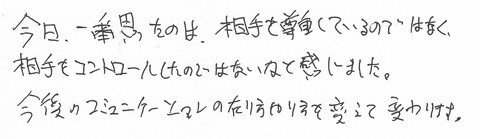 今日、一番思ったのは、相手を尊重しているのではなく、
相手をコントロールしたのではないかなと感じました。
今後のコミュニケーションの在り方やり方を変えて変わります。